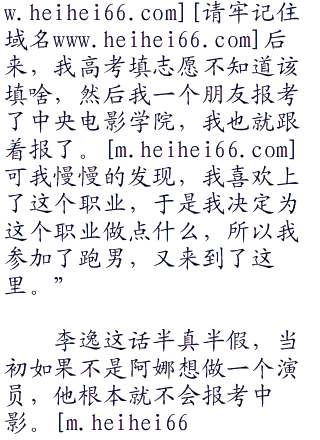 w.heihei66.com][请牢记住
域名www.heihei66.com]后
来，我高考填志愿不知道该
填啥，然后我一个朋友报考
了中央电影学院，我也就跟
着报了。[m.heihei66.com]
可我慢慢的发现，我喜欢上
了这个职业，于是我决定为
这个职业做点什么，所以我
参加了跑男，又来到了这
里。”
李逸这话半真半假，当
初如果不是阿娜想做一个演
员，他根本就不会报考中
影。[m.heihei66